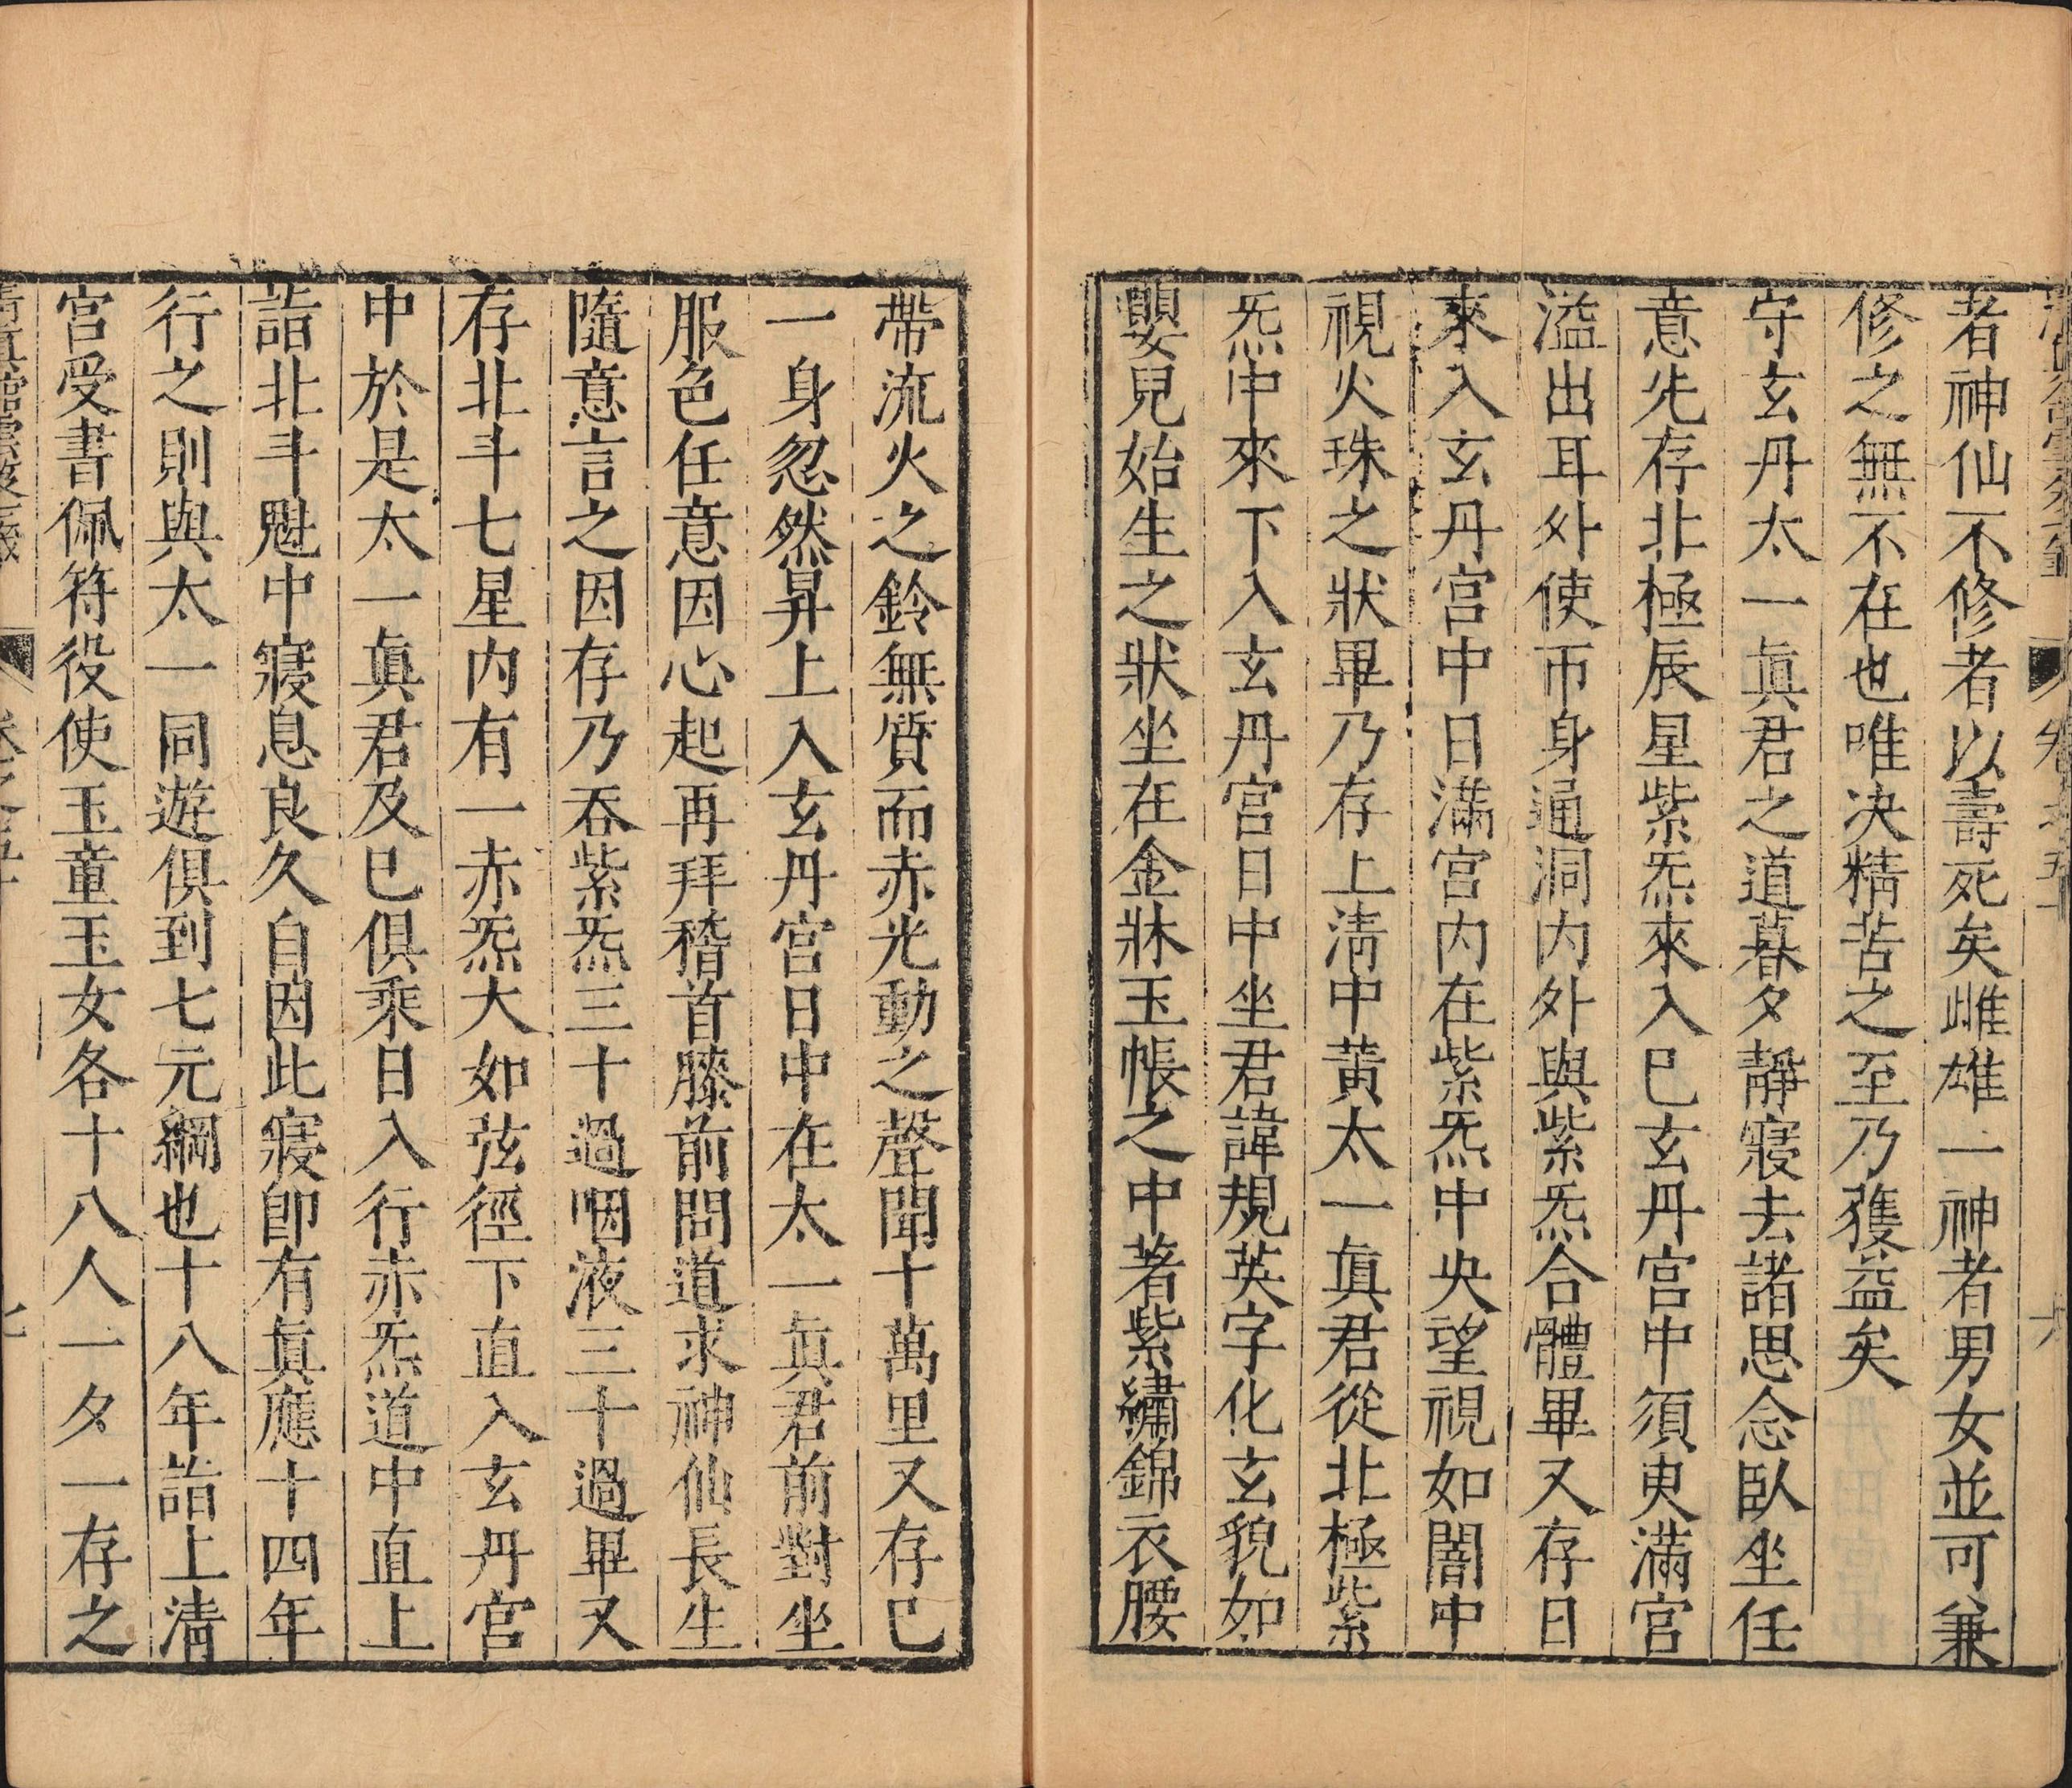 者神仙不修者以壽死矣雌雄一神者男女並可兼
修之無不在也唯决精苦之至乃獲益矣
守玄丹太一眞君之道暮夕靜寢去諸思念臥坐任
意先存北極辰星紫炁來入巳玄丹宮中須臾滿宮
溢出耳外使帀身通洞内外與紫炁合體畢又存日
來入玄丹宮中日滿宮内在紫炁中央望視如闇中
視火珠之狀畢乃存上淸中黃太一眞君從北極紫
炁中來下入玄丹宮日中坐君諱規英字化玄貌如
嬰兒始生之狀坐在金牀玉帳之中著紫繡錦衣腰
帶流火之鈴無質而赤光動之聲聞十萬里又存巳
一身忽然昇上入玄丹宮日中在太一眞君前對坐
服色任意因心起再拜稽首膝前問道求神仙長生
隨意言之因存乃吞紫炁三十過咽液三十過畢又
存北斗七星内有一赤炁大如弦徑下直入玄丹宮
中於是太一眞君及巳俱乘日入行赤炁道中直上
詣北斗魁中寢息良久自因此寢卽有眞應十四年
行之則與太一同遊俱到七元綱也十八年詣上淸
宮受書佩符役使玉童玉女各十八人一夕一存之
七